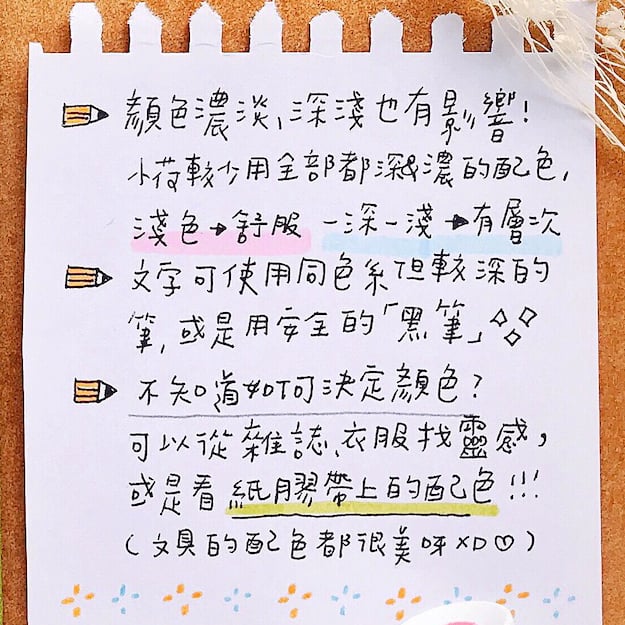 顏色濃淡、深淺也有影響!
小荷較少用全部都深&濃的配色,
淺色→舒服 一深一淺→有層次
文字可使用同色系但較深的
筆,或是用安全的「黑筆」
不知道如何決定顏色?
可以從雜誌、衣服找靈感,
或是看紙膠帶上的配色!!!
(文具的配色都很美呀XD♡)